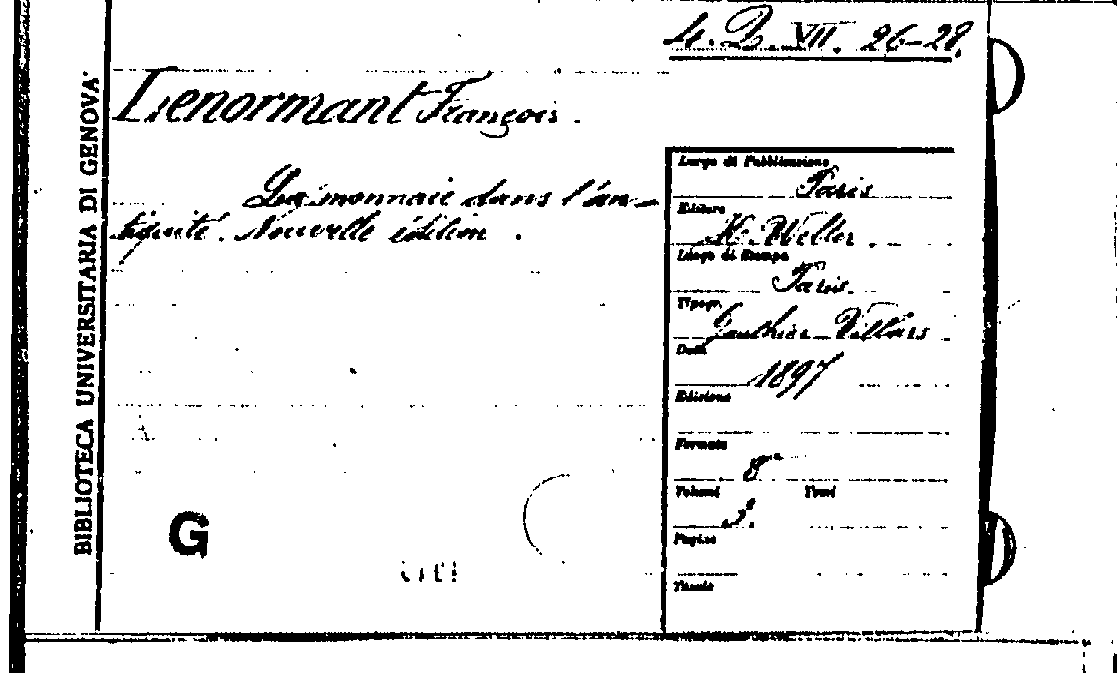 4. Q. VII. 26-28.
BIBLIOTECA UNIVERSITARIA DI GENOVA
Lenormant François.
La monnaie dans l'an-
tiquité. Nouvelle édition.
Luogo di Pubblicazione
Paris
Editore
H. Welter.
Luogo di Stampa
Paris.
Tipogr.
Gauthier-Villars
Data
1897
Edizione
Formato
8°
Volumi Tomi
3.
Pagine
Tavole
G